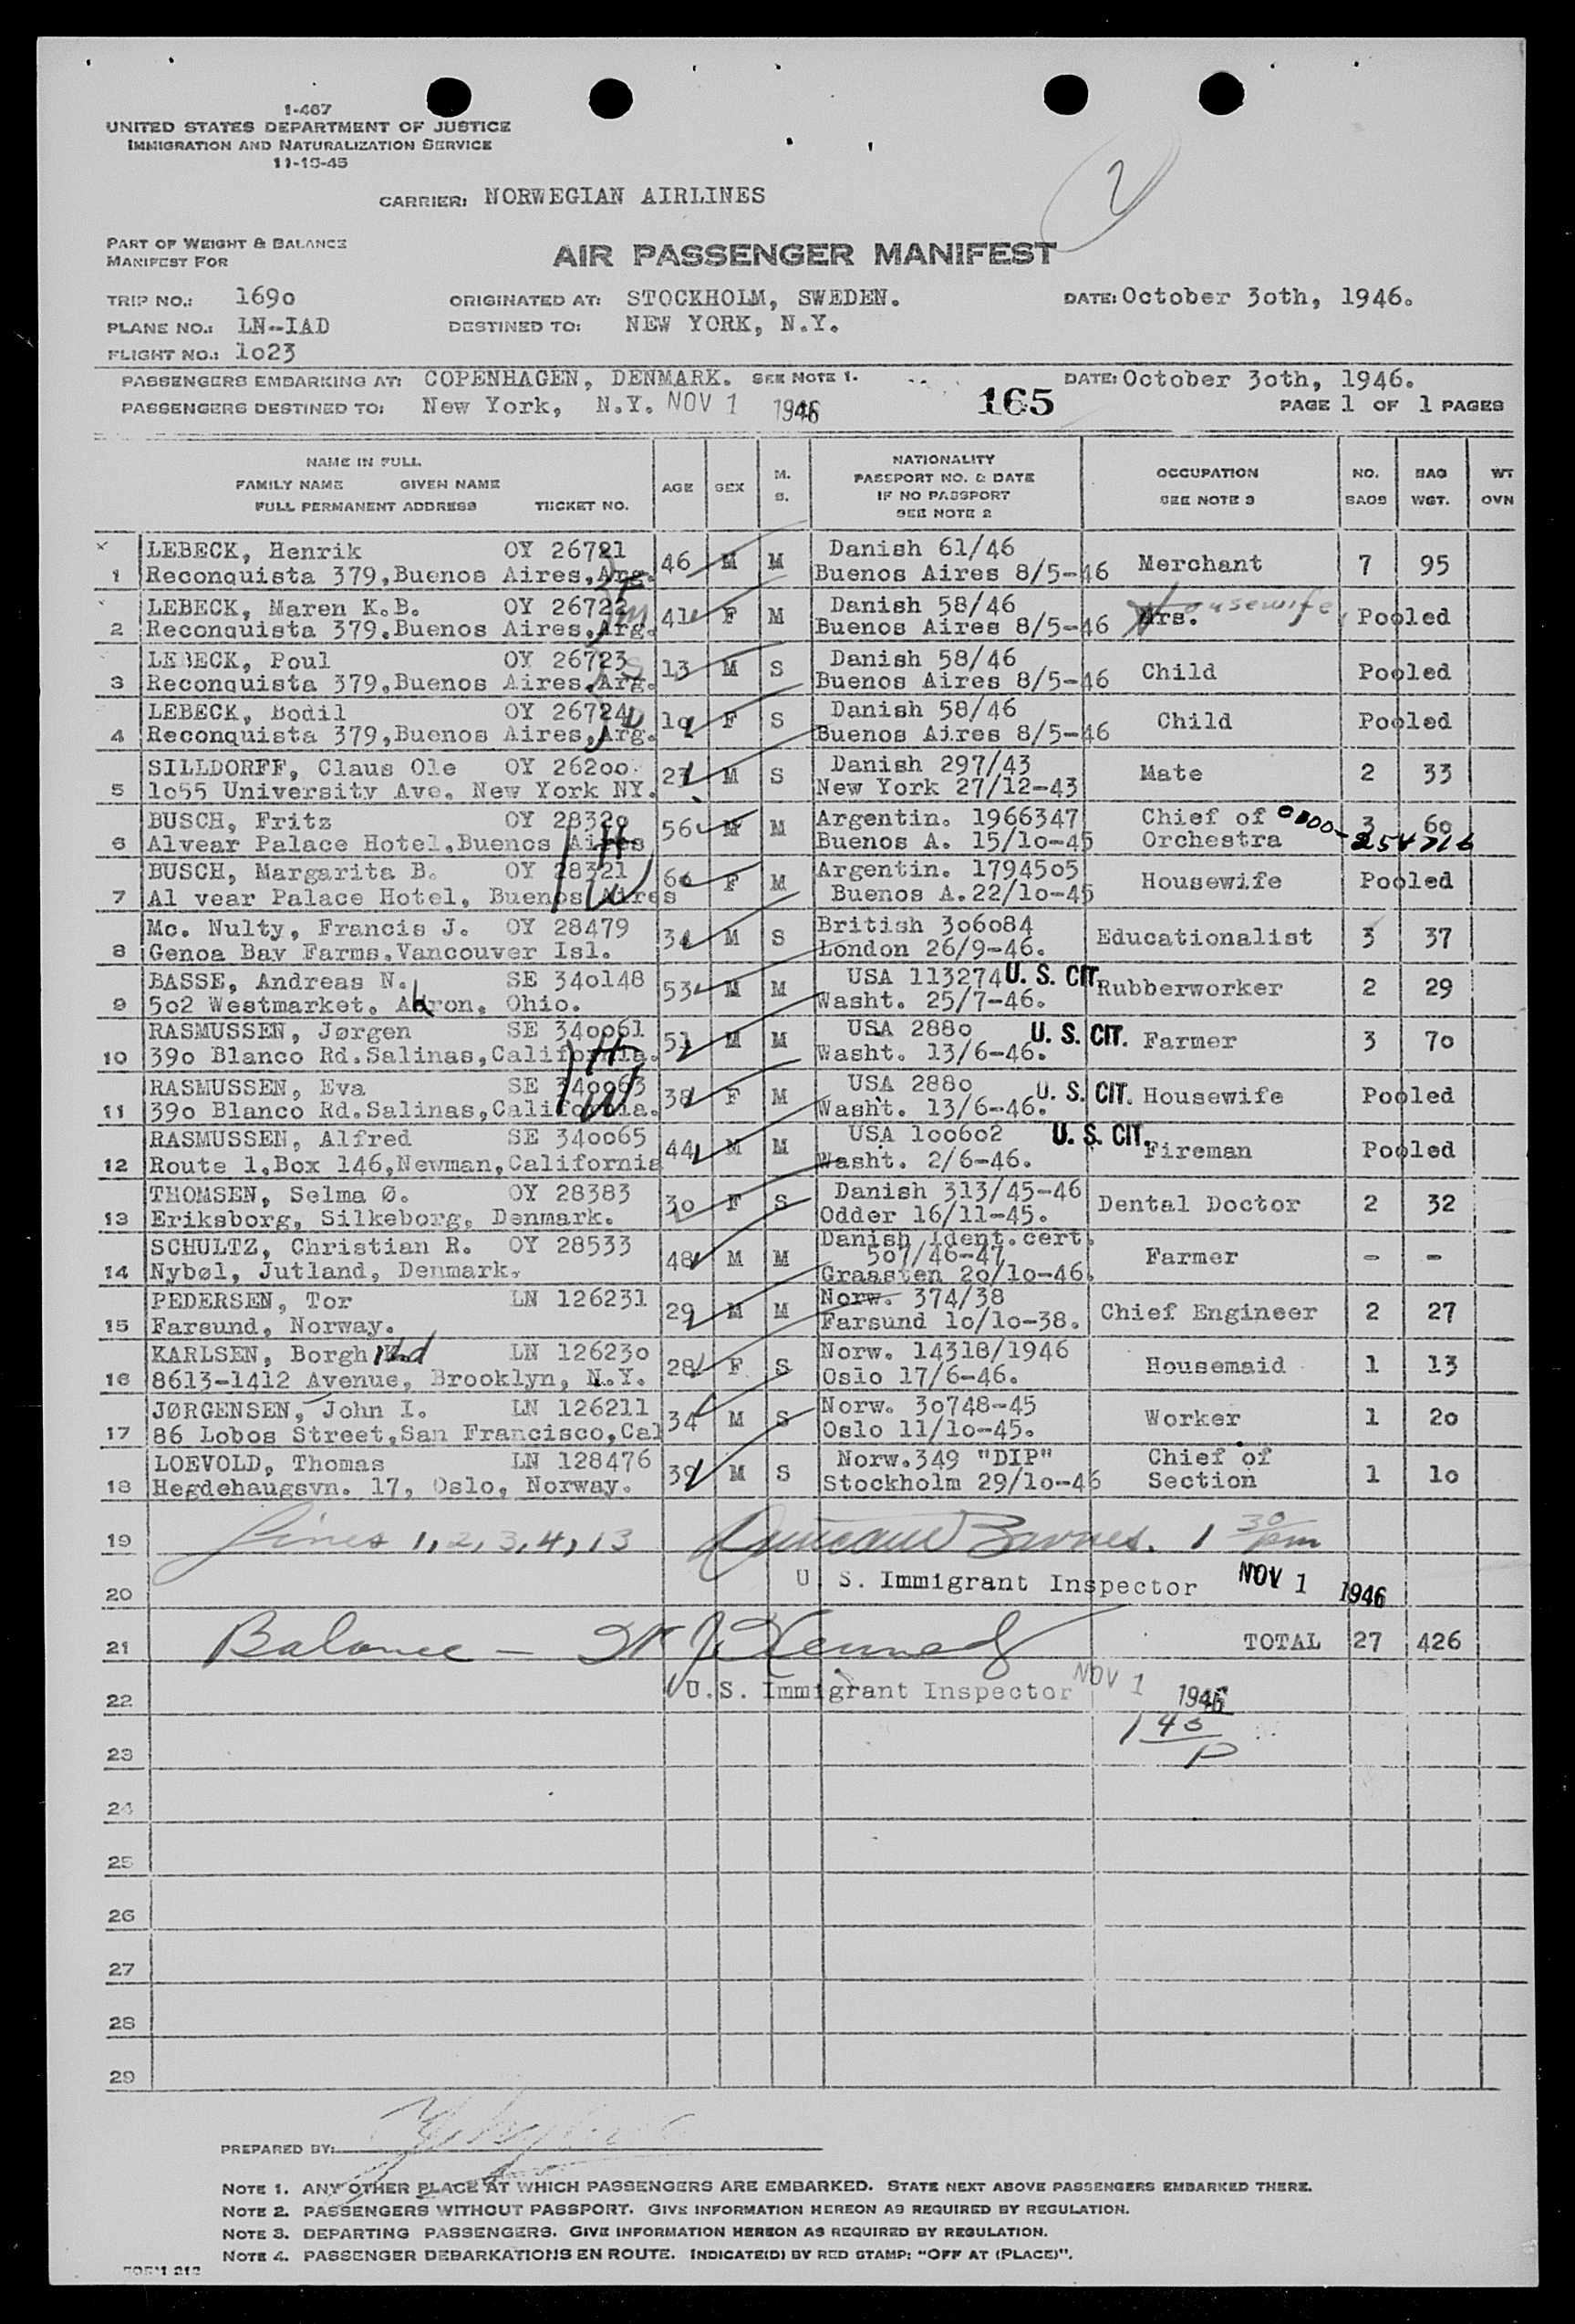 1-467
UNITED STATES DEPARTMENT OF JUSTICE
IMMIGRATION AND NATURALIZATION SERVICE
11-15-45
2
CARRIER: NORWEGIAN AIRLINES
PART OF WEIGHT & BALANCE
MANIFEST FOR
AIR PASSENGER MANIFEST
TRIP NO.: 169o ORIGINATED AT: STOCKHOLM, SWEDEN. DATE: October 3oth, 1946.
PLANE NO.: LN-IAD DESTINED TO: NEW YORK, N.Y.
FLIGHT NO.: 1o23
PASSENGERS EMBARKING AT: COPENHAGEN, DENMARK. SEE NOTE 1. DATE: October 3oth, 1946.
PASSENGERS DESTINED TO: New York, N.Y. NOV 1 1946 165 PAGE 1 OF 1 PAGES
NAME IN FULL
FAMILY NAME GIVEN NAME
FULL PERMANENT ADDRESS TICKET NO. AGE SEX M. S. NATIONALITY PASSPORT NO. & DATE IF NO PASSPORT SEE NOTE 2 OCCUPATION SEE NOTE 3 NO. BAGS BAG WGT. WT OVN
x LEBECK, Henrik OY 26721 46 M M Danish 61/46 Merchant 7 95
1 Reconquista 379,Buenos Aires,Arg. Buenos Aires 8/5-46
LEBECK, Maren K.B. OY 26722 41 F M Danish 58/46 Mrs. Housewife Pooled
2 Reconquista 379,Buenos Aires,Arg. Buenos Aires 8/5-46
LEBECK, Poul OY 26723 13 M S Danish 58/46 Child Pooled
3 Reconquista 379,Buenos Aires,Arg. Buenos Aires 8/5-46
LEBECK, Bodil OY 26724 1o F S Danish 58/46 Child Pooled
4 Reconquista 379,Buenos Aires,Arg. Buenos Aires 8/5-46
SILLDORFF, Claus Ole OY 262oo 27 M S Danish 297/43 Mate 2 33
5 1o55 University Ave. New York NY. New York 27/12-43
BUSCH, Fritz OY 2832o 56 M M Argentin. 1966347 Chief of 3 6o
6 Alvear Palace Hotel,Buenos Aires H Buenos A. 15/1o-45 Orchestra
BUSCH, Margarita B. OY 28321 6o F M Argentin. 17945o5 Housewife Pooled
7 Al vear Palace Hotel, Buenos Aires W Buenos A.22/1o-45
Mc. Nulty, Francis J. OY 28479 34 M S British 3o6o84 Educationalist 3 37
8 Genoa Bay Farms,Vancouver Isl. London 26/9-46.
BASSE, Andreas N. SE 34o148 53 M M USA 113274 U. S. CIT. Rubberworker 2 29
9 5o2 Westmarket. Akron, Ohio. Washt. 25/7-46.
RASMUSSEN, Jørgen SE 34oo61 51 M M USA 288o U. S. CIT. Farmer 3 7o
10 39o Blanco Rd.Salinas,California. H Washt. 13/6-46.
RASMUSSEN, Eva SE 34oo63 38 F M USA 288o U. S. CIT. Housewife Pooled
11 39o Blanco Rd.Salinas,California. W Washt. 13/6-46.
RASMUSSEN, Alfred SE 34oo65 44 M M USA 1oo6o2 U. S. CIT. Fireman Pooled
12 Route 1,Box 146,Newman,California Washt. 2/6-46.
THOMSEN, Selma Ø. OY 28383 3o F S Danish 313/45-46 Dental Doctor 2 32
13 Eriksborg, Silkeborg, Denmark. Odder 16/11-45.
SCHULTZ, Christian R. OY 28533 48 M M Danish Ident.cert. 5o7/46-47 Farmer - -
14 Nybøl, Jutland, Denmark. Graasten 2o/1o-46.
PEDERSEN, Tor LN 126231 29 M M Norw. 374/38 Chief Engineer 2 27
15 Farsund, Norway. Farsund 1o/1o-38.
KARLSEN, Borghild LN 12623o 28 F S Norw. 14318/1946 Housemaid 1 13
16 8613-1412 Avenue, Brooklyn, N.Y. Oslo 17/6-46.
JØRGENSEN, John I. LN 126211 34 M S Norw. 3o748-45 Worker 1 2o
17 86 Lobos Street,San Francisco,Cal Oslo 11/1o-45.
LOEVOLD, Thomas LN 128476 39 M S Norw.349 "DIP" Chief of 1 1o
18 Hegdehaugsvn. 17, Oslo, Norway. Stockholm 29/1o-46 Section
19 Lines 1,2,3,4,13 Duncan Barnes. 1 30 pm
20 U S. Immigrant Inspector NOV 1 1946
21 Balance - Kennedy TOTAL 27 426
22 U.S. Immigrant Inspector NOV 1 1946
1 45
23 P
24
25
26
27
28
29
PREPARED BY:
NOTE 1. ANY OTHER PLACE AT WHICH PASSENGERS ARE EMBARKED. STATE NEXT ABOVE PASSENGERS EMBARKED THERE.
NOTE 2. PASSENGERS WITHOUT PASSPORT. GIVE INFORMATION HEREON AS REQUIRED BY REGULATION.
NOTE 3. DEPARTING PASSENGERS. GIVE INFORMATION HEREON AS REQUIRED BY REGULATION.
NOTE 4. PASSENGER DEBARKATIONS EN ROUTE. INDICATE(D) BY RED STAMP: "OFF AT (PLACE)".
FORM 212